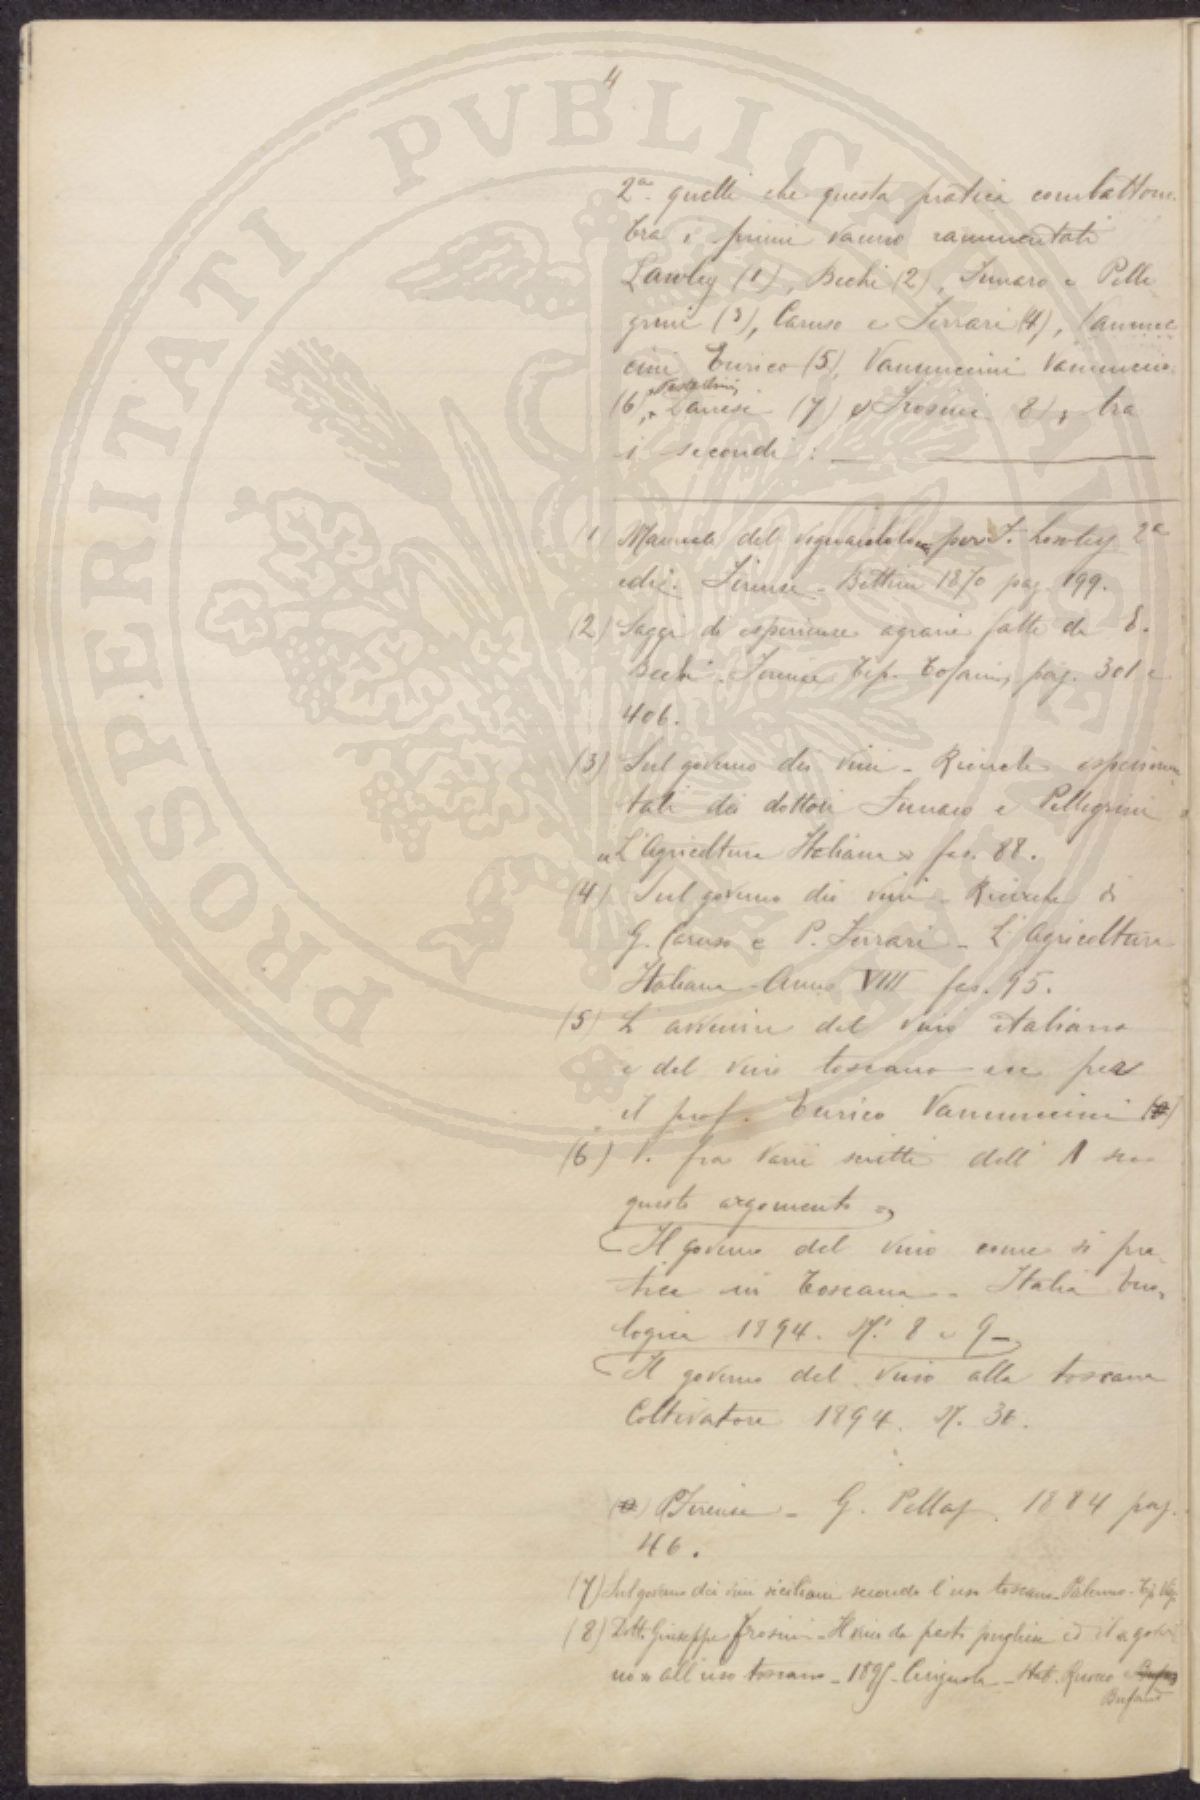 4
2ª quelli che questa pratica combattono.
Tra i primi vanno rammentati
Lawley (1), Bechi (2), Funaro e Pelle
grini (3), Caruso e Ferrari (4), Vannuc
cini Enrico (5), Vannuccini Vannuccio
(6), Danesi (7) e Frosini 8), tra
i secondi : —
(1) Manuale del vignaiolo per F. Lawley 2ª
ediz. Firenze - Bettini 1870 pag. 199.
(2) Saggi di esperienze agrarie fatte da E.
Bechi. Firenze Tip. Tofani, pag. 301 e
406.
(3) Sul governo dei vini - Ricerche esperimen
tali dei dottori Funaro e Pellegrini
«L'Agricoltura Italiana» fas. 88.
(4) Sul governo dei vini - Ricerche di
G. Caruso e P. Ferrari - L'Agricoltura
Italiana - Anno VIII fas. 95.
(5) L'avvenire del vino italiano
e del vino toscano per
il prof. Enrico Vannuccini
(6) V. fra varii scritti dell'
questo argomento =
Il governo del vino come si pra
tica in Toscana - Italia Eno
logica 1894. N.i 8 e 9 -
Il governo del vino alla toscana
Coltivatore 1894. N. 36.
Firenze - G. Pellas. 1884 pag.
46.
(7) Sul governo dei vini siciliani secondo l'uso toscano - Palermo - Tip.
(8) Dott. Giuseppe Frosini - Il vino da pasto pugliese ed il «gover
no» all'uso toscano - 1895 - Cerignola - Stab.
PROSPERITATI PVBLICAE